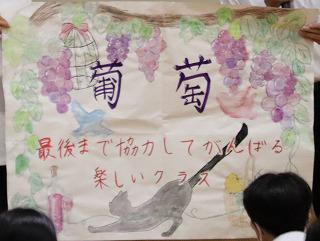 葡萄
最後まで協力してがんばる
楽しいクラス